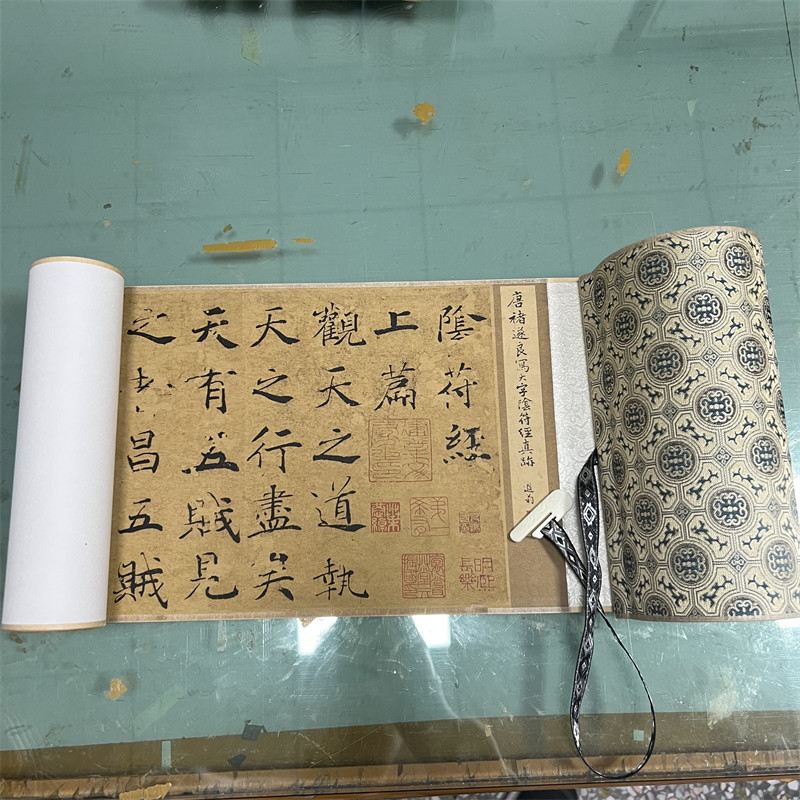 唐褚遂良寫大字陰符經真跡
陰符經
上篇
觀天之道執
天之行盡矣
天有五賊見
之者昌五賊